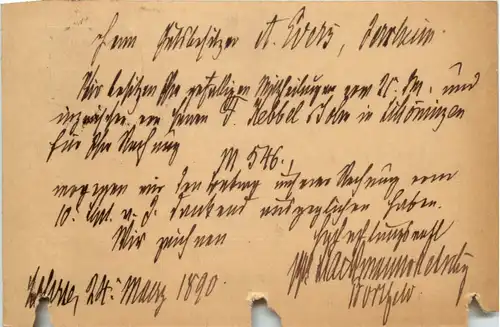 Herrn Gutsbesitzer A. Evers,
Wir besitzen Ihre gefälligen Mittheilungen vom 21. dM. und
inzwischen von Herrn F. Hebbel Sohn in
für Ihre Rechnung
M 546.,
wogegen wir den Betrag unserer Rechnung vom
10. v. J. dankend ausgeglichen haben.
Wir zeichnen
Hochachtungsvoll
24. März 1890.